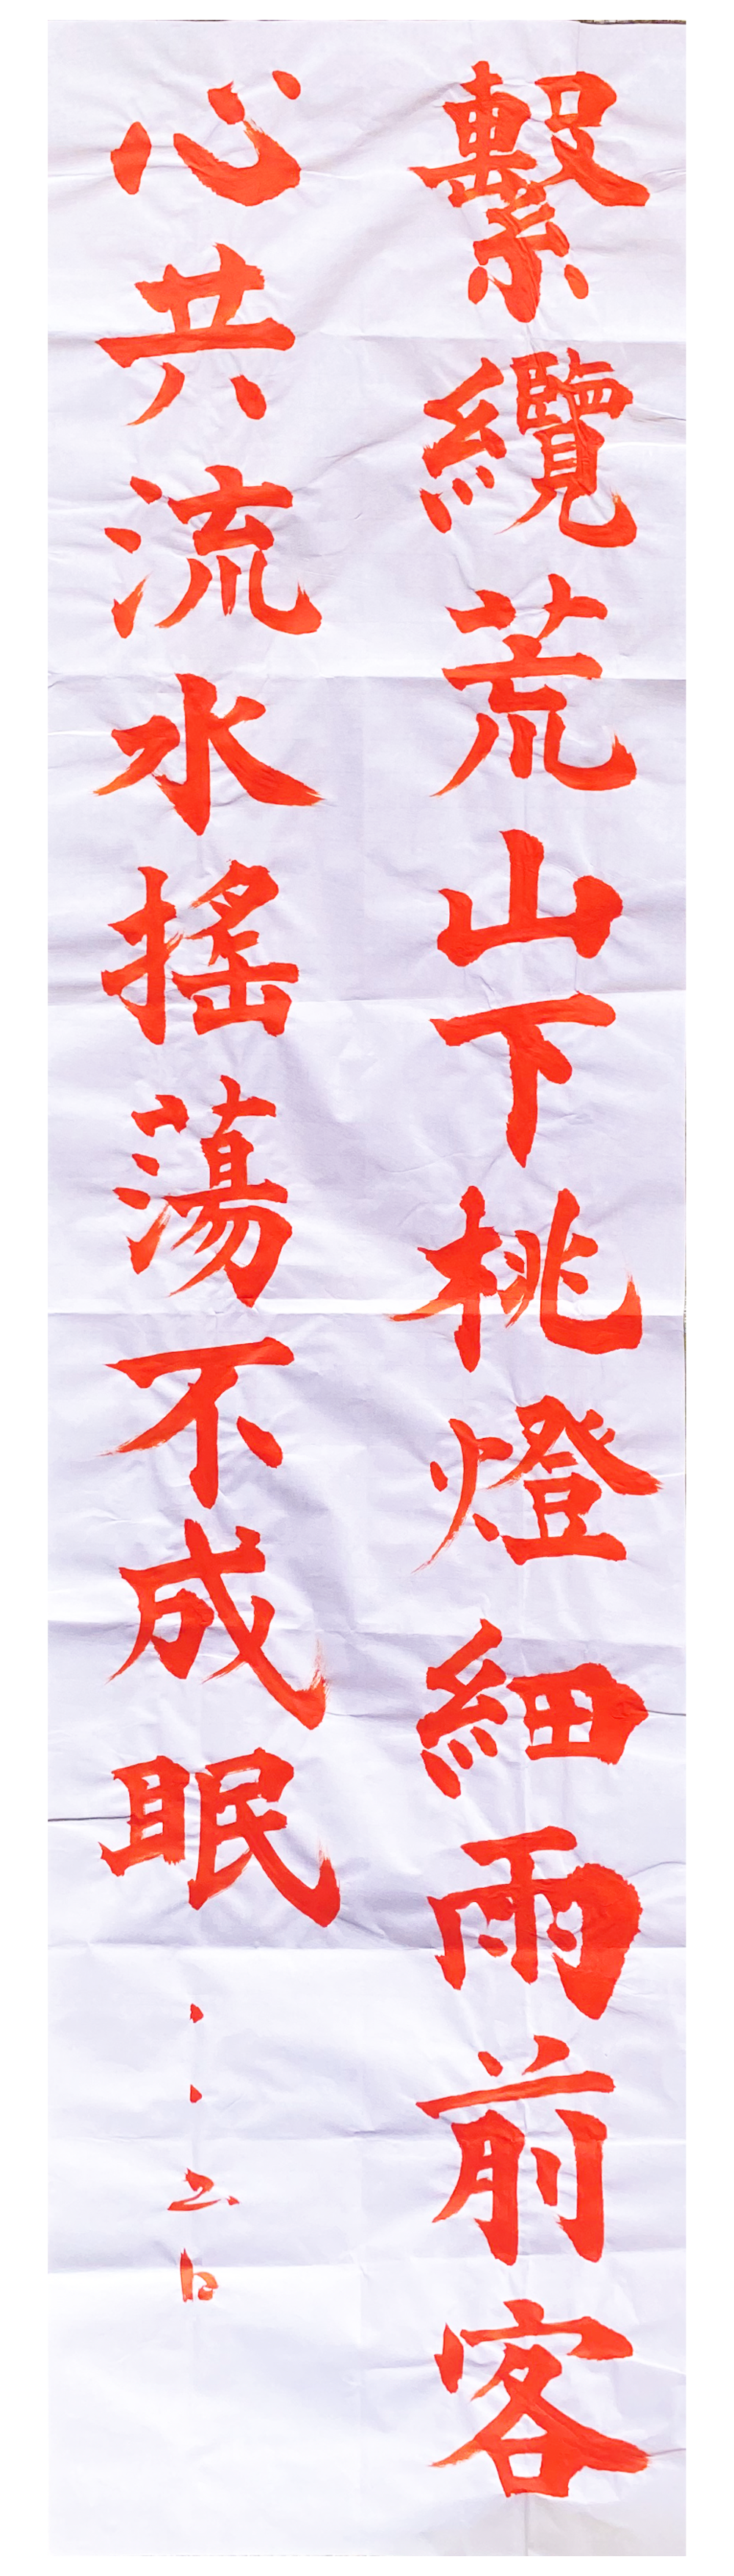 繫纜荒山下桃燈細雨前客
心共流水搖蕩不成眠